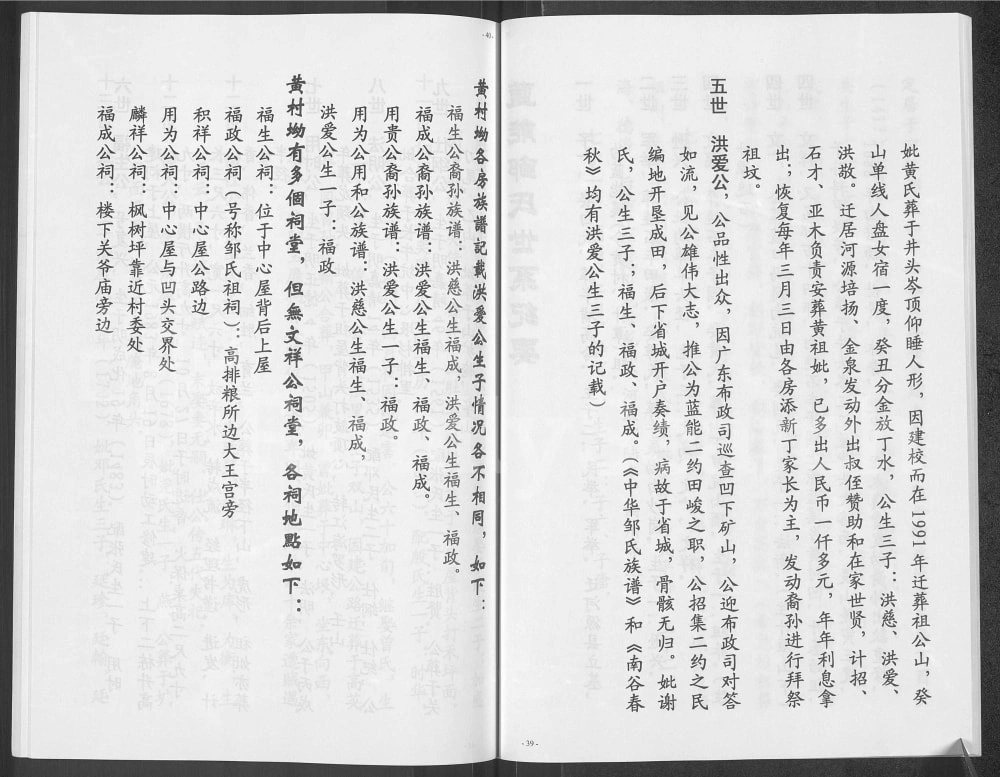 妣黄氏葬于井头岑顶仰睡人形，因建校而在1991年迁葬祖公山，癸
山单线人盘女宿一度，癸丑分金放丁水，公生三子：洪慈、洪爱、
洪敖。迁居河源培扬、金泉发动外出叔侄赞助和在家世贤，计招、
石才、亚木负责安葬黄祖妣，已多出人民币一仟多元，年年利息拿
出；恢复每年三月三日由各房添新丁家长为主，发动裔孙进行拜祭
祖坟。
五世 洪爱公，公品性出众，因广东布政司巡查凹下矿山，公迎布政司对答
如流，见公雄伟大志，推公为蓝能二约田峻之职，公招集二约之民
编地开垦成田，后下省城开户奏绩，病故于省城，骨骸无归。妣谢
氏，公生三子；福生、福政、福成。（《中华邹氏族谱》和《南谷春
秋》均有洪爱公生三子的记载）
- 39 -
黄村坳各房族譜记載洪爱公生子情况各不相同，如下：
福生公裔孙族谱：洪慈公生福成，洪爱公生福生、福政。
福成公裔孙族谱：洪爱公生福生、福政、福成。
用贵公裔孙族谱：洪爱公生一子：福政。
用为公用和公族谱：洪慈公生福生、福成，
洪爱公生一子：福政
黄村坳有多個祠堂，但無文祥公祠堂，各祠地點如下：
福生公祠：位于中心屋背后上屋
福政公祠（号称邹氏祖祠）：高排粮所边大王宫旁
积祥公祠：中心屋公路边
用为公祠：中心屋与凹头交界处
麟祥公祠：枫树坪靠近村委处
福成公祠：楼下关爷庙旁边
- 40 -